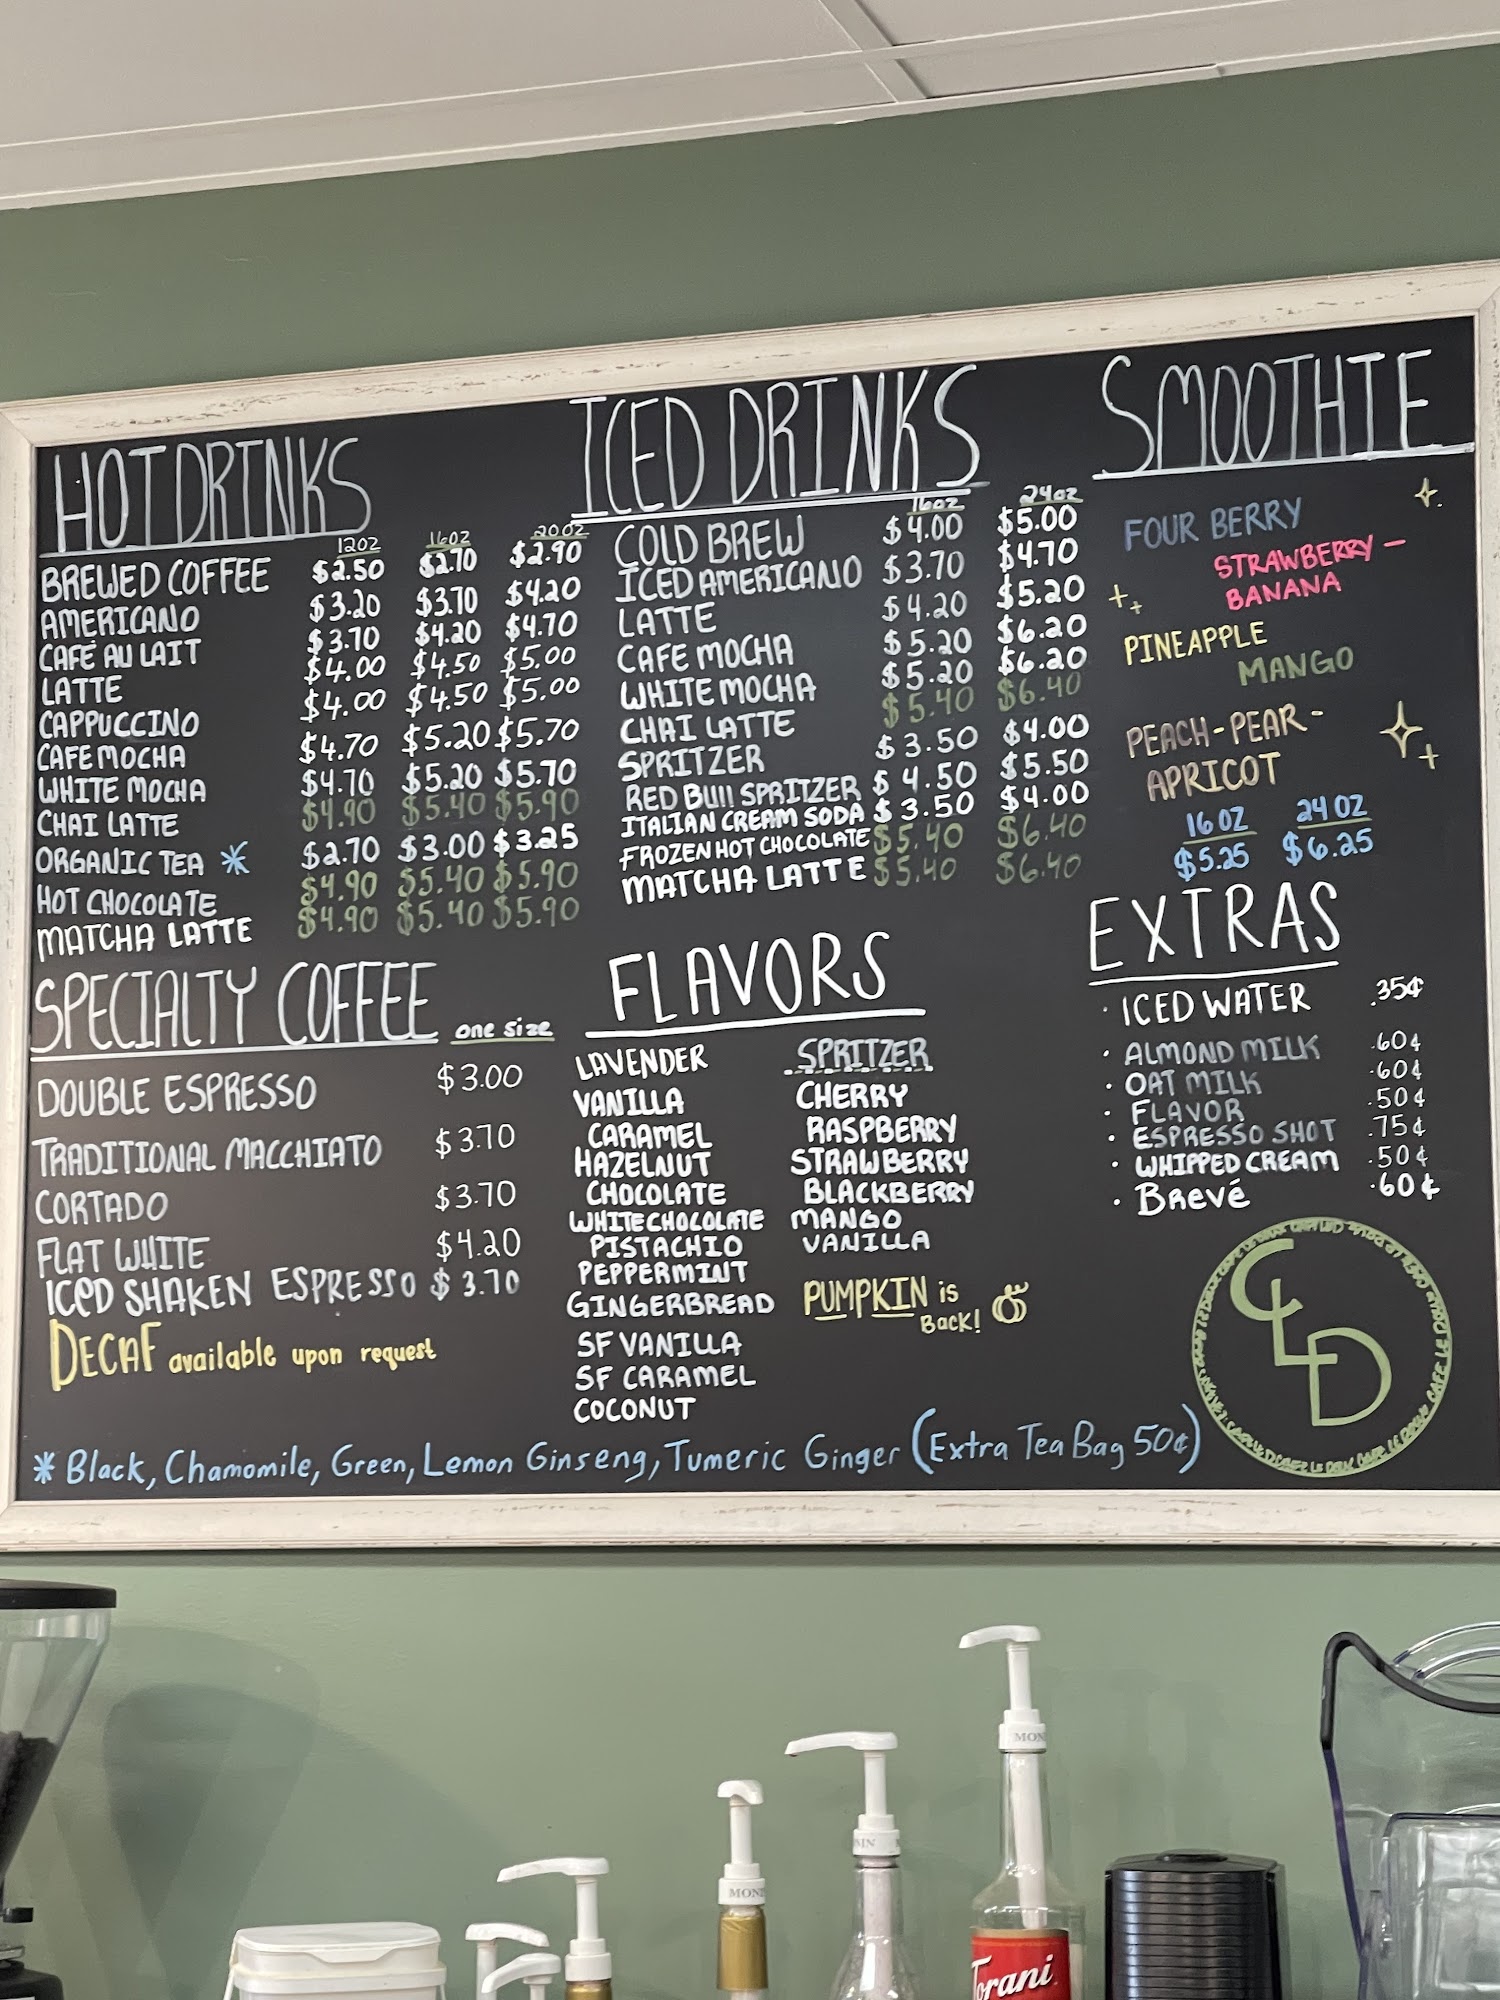 HOT DRINKS
12OZ 16OZ 20OZ
BREWED COFFEE $2.50 $2.70 $2.90
AMERICANO $3.20 $3.70 $4.20
CAFÉ AU LAIT $3.70 $4.20 $4.70
LATTE $4.00 $4.50 $5.00
CAPPUCCINO $4.00 $4.50 $5.00
CAFE MOCHA $4.70 $5.20 $5.70
WHITE MOCHA $4.70 $5.20 $5.70
CHAI LATTE $4.90 $5.40 $5.90
ORGANIC TEA * $2.70 $3.00 $3.25
HOT CHOCOLATE $4.90 $5.40 $5.90
MATCHA LATTE $4.90 $5.40 $5.90
SPECIALTY COFFEE one size
DOUBLE ESPRESSO $3.00
TRADITIONAL MACCHIATO $3.70
CORTADO $3.70
FLAT WHITE $4.20
ICED SHAKEN ESPRESSO $3.70
DECAF available upon request
ICED DRINKS
16OZ 24OZ
COLD BREW $4.00 $5.00
ICED AMERICANO $3.70 $4.70
LATTE $4.20 $5.20
CAFE MOCHA $5.20 $6.20
WHITE MOCHA $5.20 $6.20
CHAI LATTE $5.40 $6.40
SPRITZER $3.50 $4.00
RED BUll SPRITZER $4.50 $5.50
ITALIAN CREAM SODA $3.50 $4.00
FROZEN HOT CHOCOLATE $5.40 $6.40
MATCHA LATTE $5.40 $6.40
FLAVORS
LAVENDER
VANILLA
CARAMEL
HAZELNUT
CHOCOLATE
WHITE CHOCOLATE
PISTACHIO
PEPPERMINT
GINGERBREAD
SF VANILLA
SF CARAMEL
COCONUT
SPRITZER
CHERRY
RASPBERRY
STRAWBERRY
BLACKBERRY
MANGO
VANILLA
PUMPKIN is
BACK!
SMOOTHIE
FOUR BERRY
STRAWBERRY –
BANANA
PINEAPPLE
MANGO
PEACH-PEAR-
APRICOT
16 OZ 24 OZ
$5.25 $6.25
EXTRAS
· ICED WATER .35¢
· ALMOND MILK .60¢
· OAT MILK .60¢
· FLAVOR .50¢
· ESPRESSO SHOT .75¢
· WHIPPED CREAM .50¢
· Brevé .60¢
CLD
* Black, Chamomile, Green, Lemon Ginseng, Tumeric Ginger (Extra Tea Bag 50¢)
MONIN
Torani